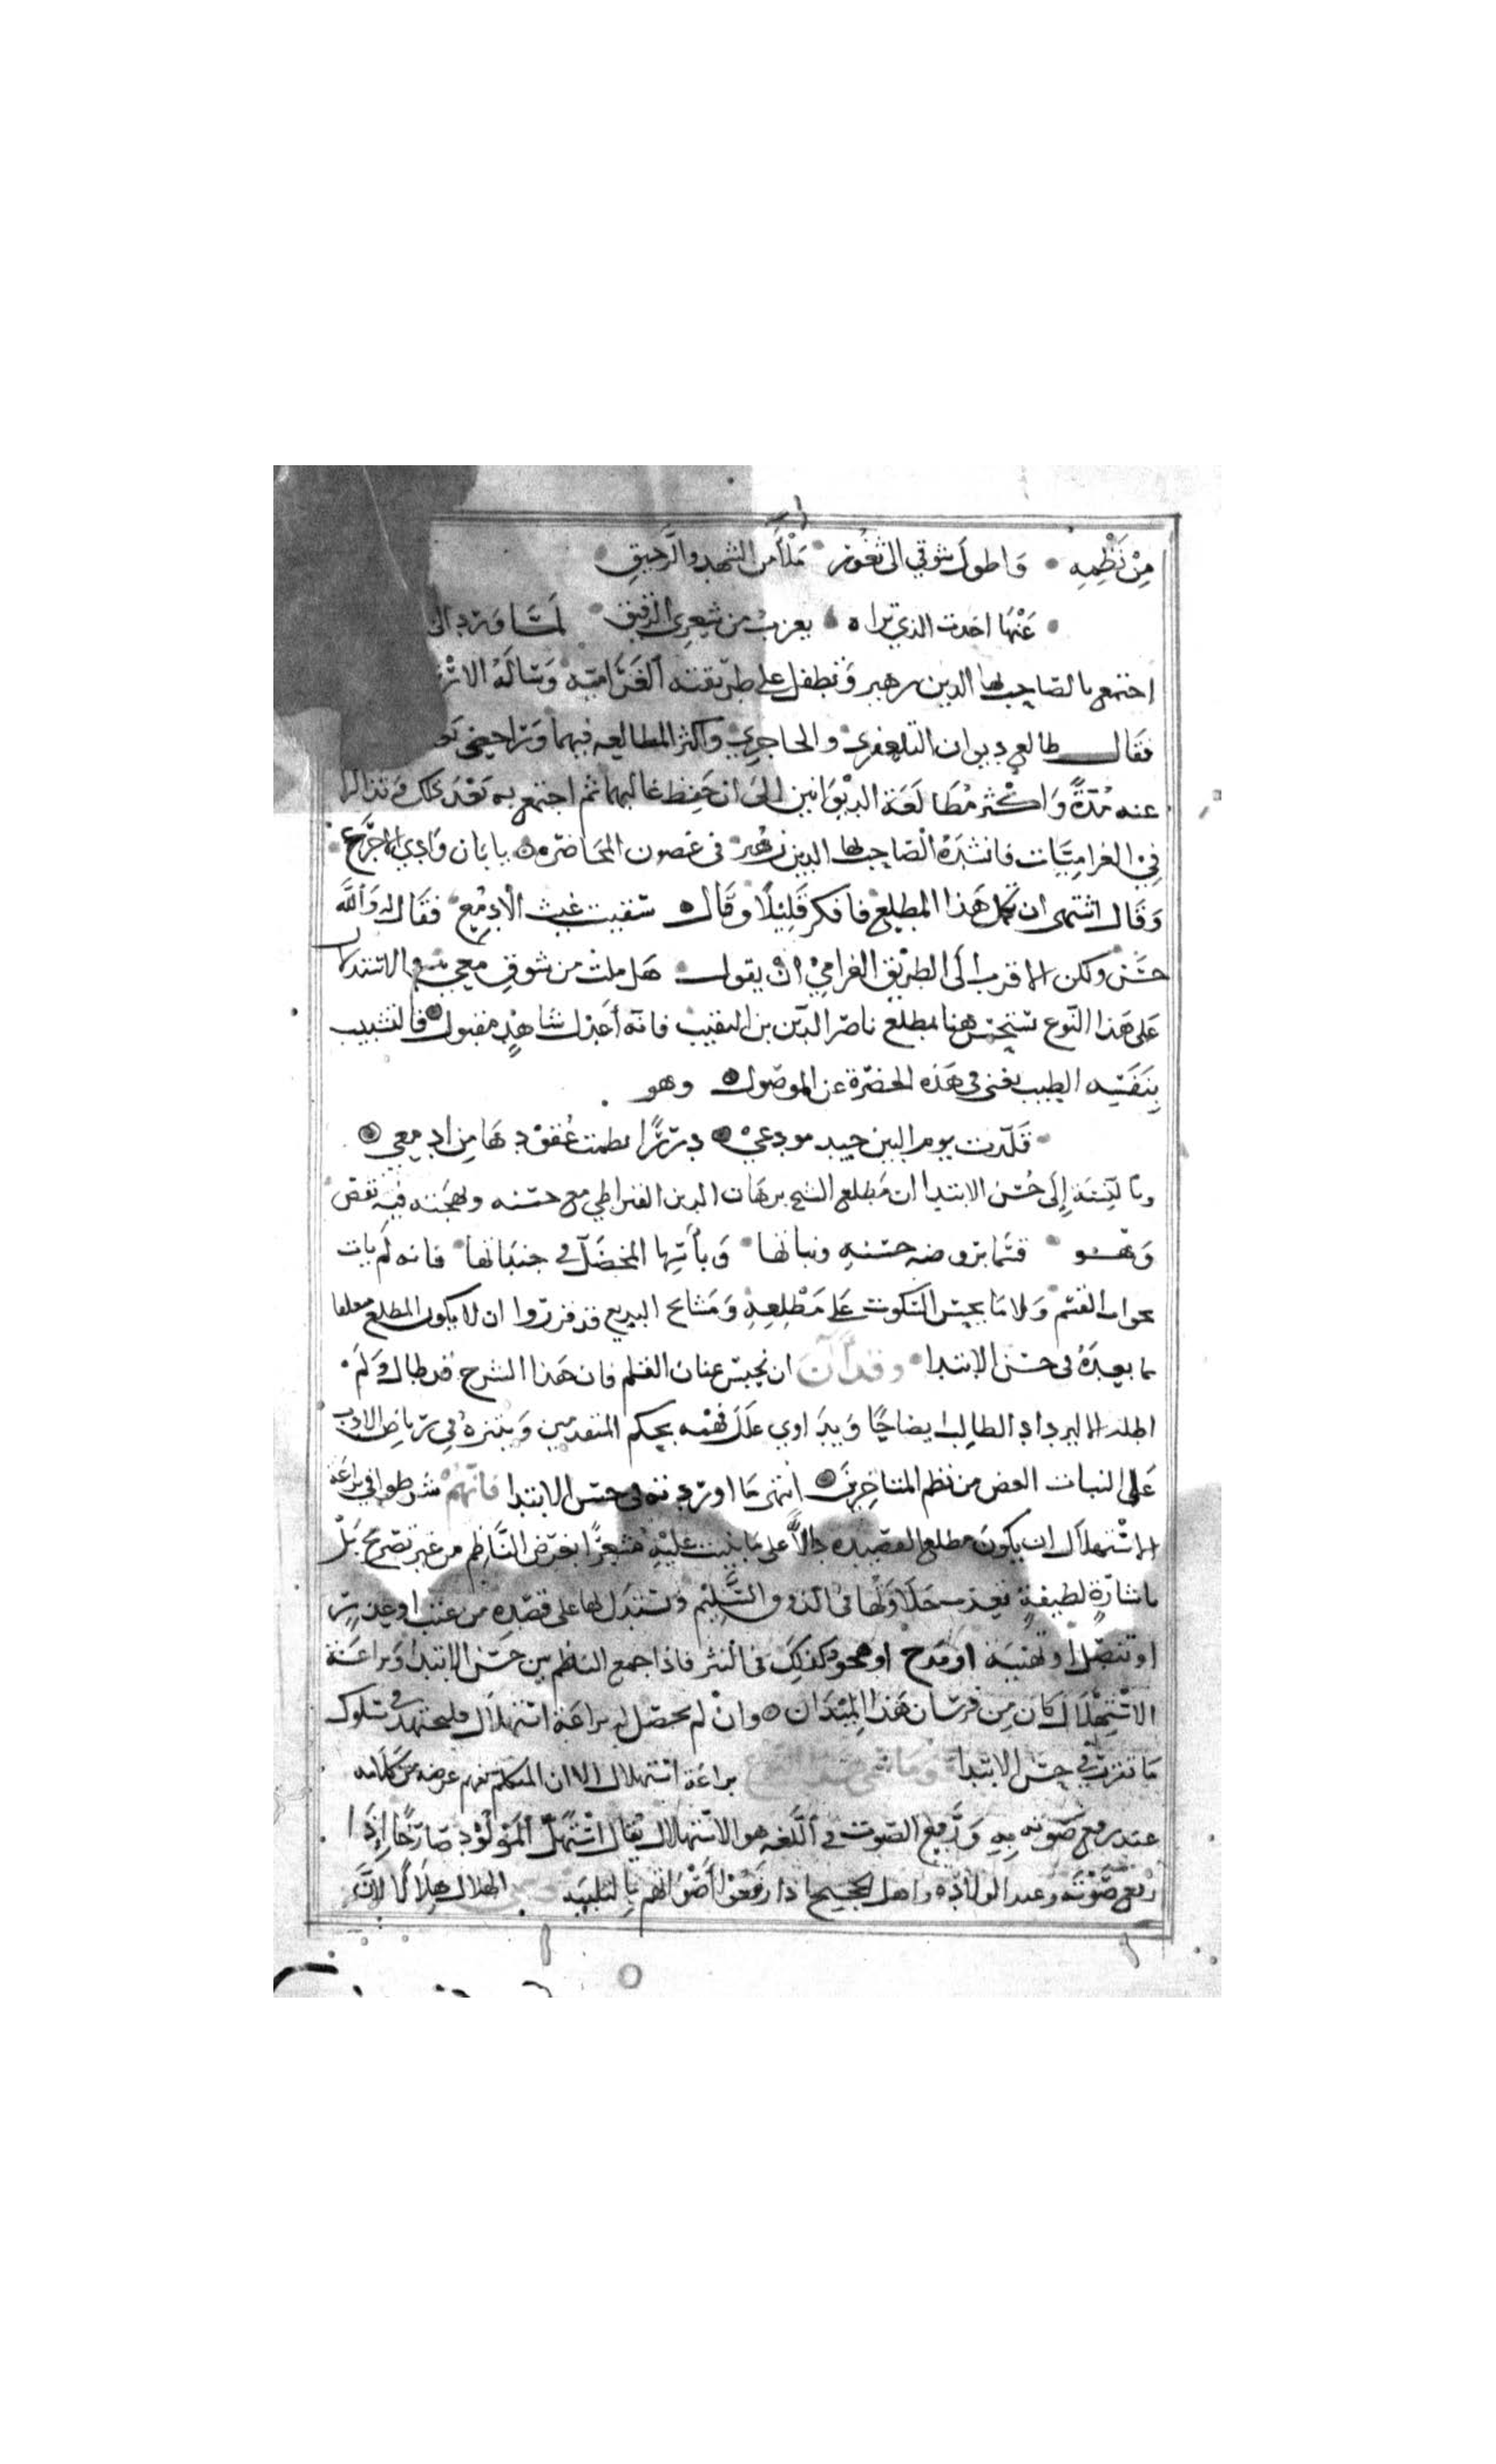 مِنْ نَظْمِهِ • وَاطول شوقي الى ثغُور • مَلأ من الشهد والرَّحيقِ •
• عَنْهَا اخذت الذي تراه • يعزب من شِعرِي الرقيق • لمَّا وَرَد الى
اجتمع بالصَاحِب بها الدين زهير وَتطفل على طرِيقته الغَرَامية وَسَالَهُ الارْشَ
فقَال طالع ديوان التلعفري والحاجرِي وَاكثر المطالعه فيهما وَراجعني بَعد
عنه مُدَّةً وَاكْثر مُطَالَعَة الدِيْوَانين الىَ ان حَفِظ غالبهما ثم اجتمع به بَعْدَ ذلك وَتذاكرا
فِي الغرامِيَّات فانشدَهُ الصَاحِب بها الدين زهير في غصون المحَاضرَه ه يا بَان وَادِي الاجرَع
وَقَال اشتهى ان تكمل هَذا المطلع فافكر قَلِيْلاً وَقَال ه سَقيت غيث الْادمُع • فقَال له وَالله
حَسَن ولكن الاقرب الَى الطرِيْق الغرامِيْ انْ يقول • هَل ملت من شوقٍ معي
عَلى هَذا النوع يستَحْسَن هنا مطلع ناصر الدِّين بن النقيب فانه أعْدَل شاهِدٍ مقبول فالتشبيب
بِنَفَسِه الطيب يغنى في هَذه الحضْرَة عن الموصُول ه وهو
• قَلّدت يوم البين جيد مودعي • دُرَرًا نظمت عُقوْدهَا مِن ادمعي
وبالنِسْبَة اِلَى حُسْن الابتدا ان مَطلع الشيخ برهَان الدين القيراطي مع حسْنه وبهجته فيه نقص
وَهْو • قسَمًا برَوضه حسْنهِ ونباتها • وَبأسِهَا المخضَلّ فى جنبَاتها • فانه لم يَات
بجواب القسَم وَلا مَا يحسن السّكوت عَلَى مَطْلعِهِ وَمَشايخ البديع قد قرروا ان لا يكون المطلع معلقا
بما بعدَهُ فى حسن الابتدا • وقد آن ان نحبس عنان القلم فان هَذا الشرح قد طال وَلَم
اطله الا ليزداد الطالب ايضاحًا وَيدَاوي عِلَل فهْمه بحكم المتقدمين وَيتنزهُ فِي رِيَاض الادب
عَلى النبات الغض من نظم المتاخِرِين ه انتهى مَا اورَدته فى حسن الابتدا فانهُم شرطوا في براعَة
الاسْتهلال ان يكون مطلع القصيده دالاً على مَا بنيت عليه مشعِرًا بغرَض النَاظِم من غير تصرِيح بَلْ
باشارَةٍ لطيفةٍ تعذب حَلاوَتها في الذوق السَّلِيْم وَيستدَل بهَا على قصْدِه من عتب او عذر
او تنصّل او تهنيَة او مَدح او هجو وكذلك في النثر فاذا جمع الناظم بين حسن الابتدا وَبراعَة
الاسْتِهْلَال كان مِن فرسَان هَذا المِيْدَان ه وانْ لم يحصّل له براعَة استهلال فليجتهد في سلوك
مَا تقرر في حسْن الابتدا وما سمى هذا النوع براعَة استهلال الا ان المتكلم يفهم غرضه من كلامه
عند رفع صَوته بِهِ وَرَفع الصَوت في اللغه هو الاستهلال يقال اسْتَهَلّ المَوْلُوْد صَارخًا اِذَا
رفع صَوْتَه عند الولادَه واهل الحجيج اذا رفعُوْا اصْوَاتَهم بِالتلبيَه وسمى الهلال هِلَالًا لاَنَّ